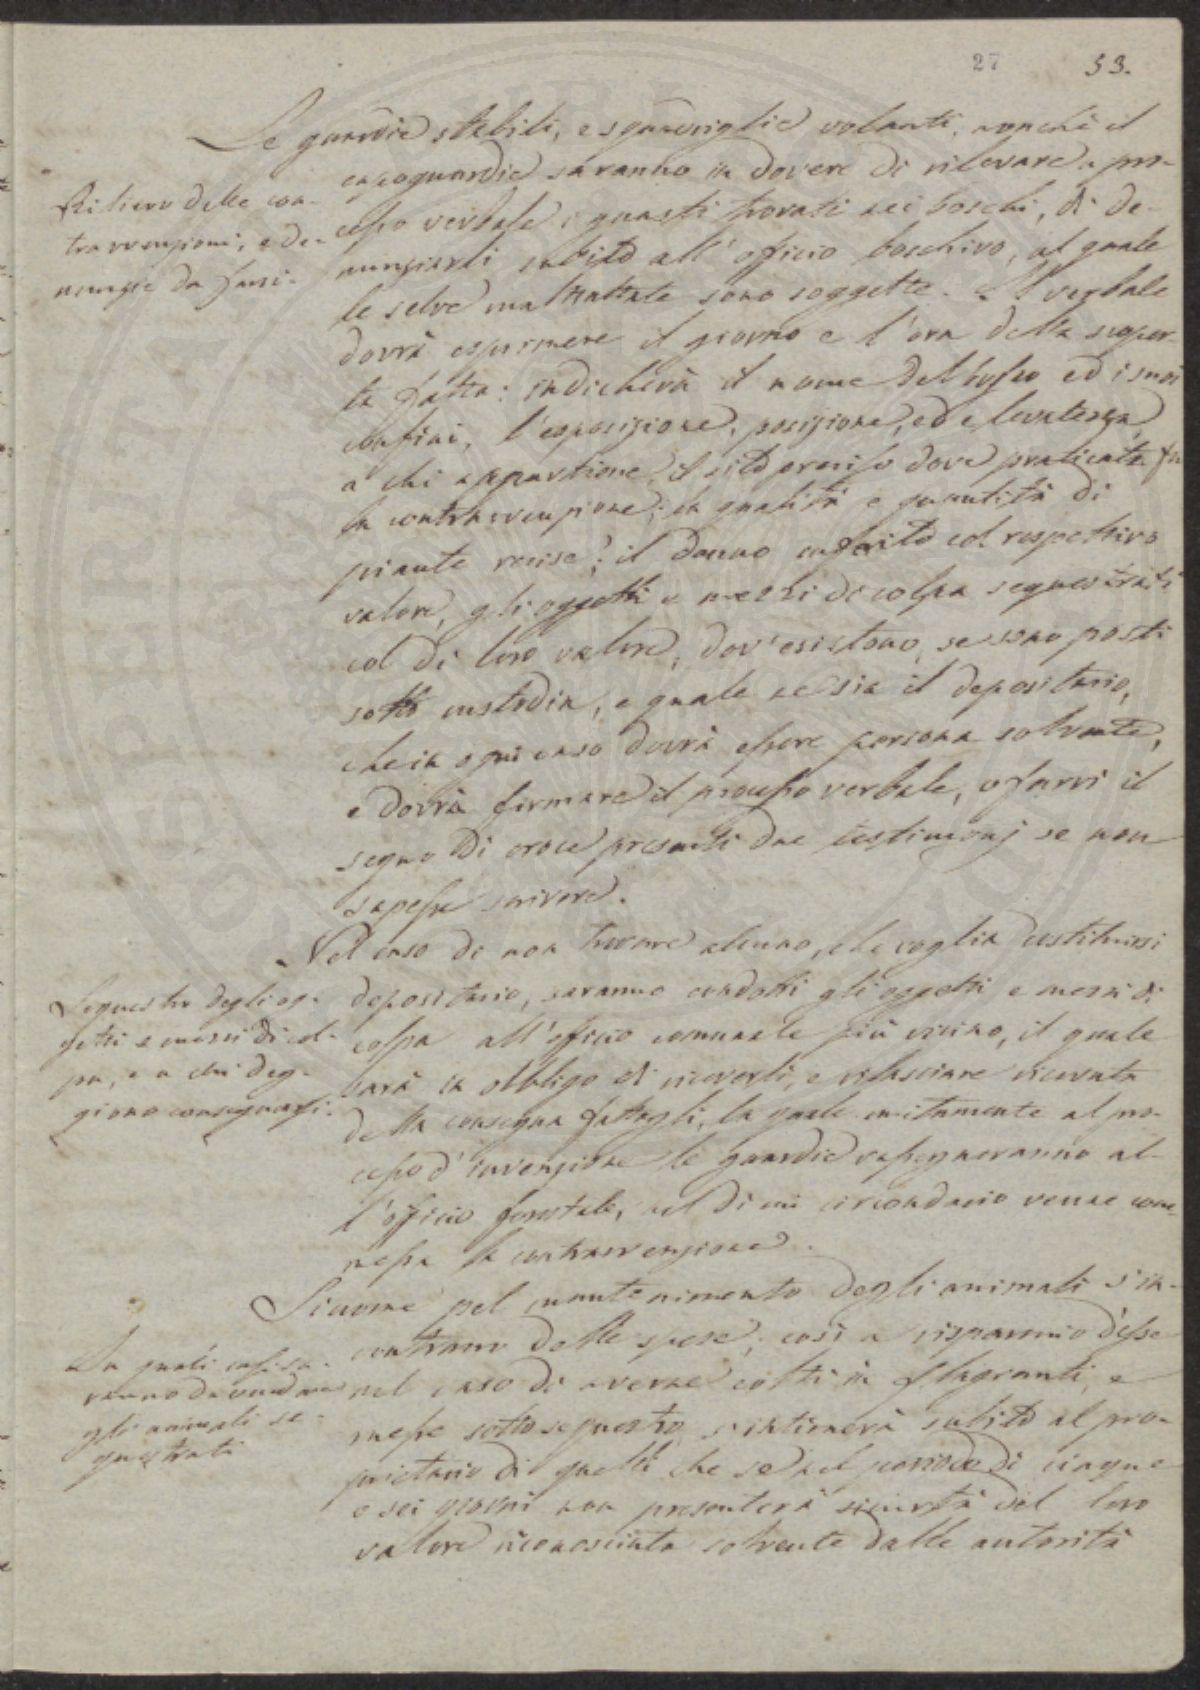 27 53.
Le guardie stabili, e squadriglie volanti, nonchè il
capoguardie saranno in dovere di rilevare a pro-
cesso verbale i guasti trovati nei boschi, di de-
nunziarli subito all'officio boschivo, al quale
le selve maltrattate sono soggette. Il verbale
dovrà esprimere il giorno e l'ora della scoper-
ta fatta: indicherà il nome del bosco ed i suoi
confini, l'esposizione, posizione, ed elevatezza
a chi appartiene, il sito preciso dove praticata fu
la contravvenzione; la qualità e quantità di
piante recise; il danno inferito col respettivo
valore, gli oggetti e mezzi di colpa sequestrati
col di loro valore, dov'esistono, se sono posti
sotto custodia, e quale ne sia il depositario,
che in ogni caso dovrà essere persona solvente,
e dovrà firmare il processo verbale, o farvi il
segno di croce presenti due testimonj se non
sapesse scrivere.
Nel caso di non trovare alcuno, che voglia costituirsi
depositario, saranno condotti gli oggetti e mezzi di
colpa all'officio comunale più vicino, il quale
sarà in obbligo di riceverli, e rilasciare ricevuta
della consegna fattagli, la quale unitamente al pro-
cesso d'invenzione le guardie rassegneranno al-
l'officio forestale, nel di cui circondario venne com-
messa la contravvenzione.
Siccome pel mantenimento degli animali s'in-
contrano delle spese, così a risparmio d'esse
nel caso di averne colti in flagranti, e
messe sotto sequestro, s'intimerà subito al pro-
prietario di quelli che se nel periodo di cinque
o sei giorni non presenterà sicurtà del loro
valore riconosciuta solvente dalle autorità
Rilievo delle con-
travvenzioni, e de-
nunzie da farsi.
Sequestro degli og-
getti e mezzi di col-
pa, e a chi deg-
giono consegnarsi.
In quali casi sa-
ranno da vendere
gli animali se-
questrati